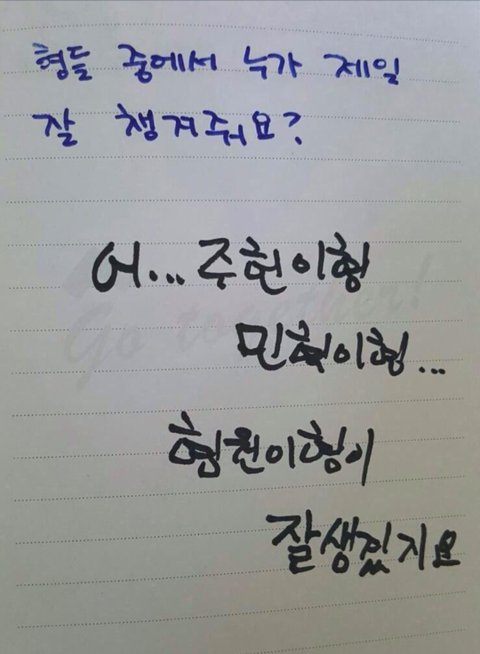 형들 중에서 누가 제일
잘 챙겨줘요?
어... 주헌이형
민혁이형...
형원이형이
잘생겼지요
Go together!